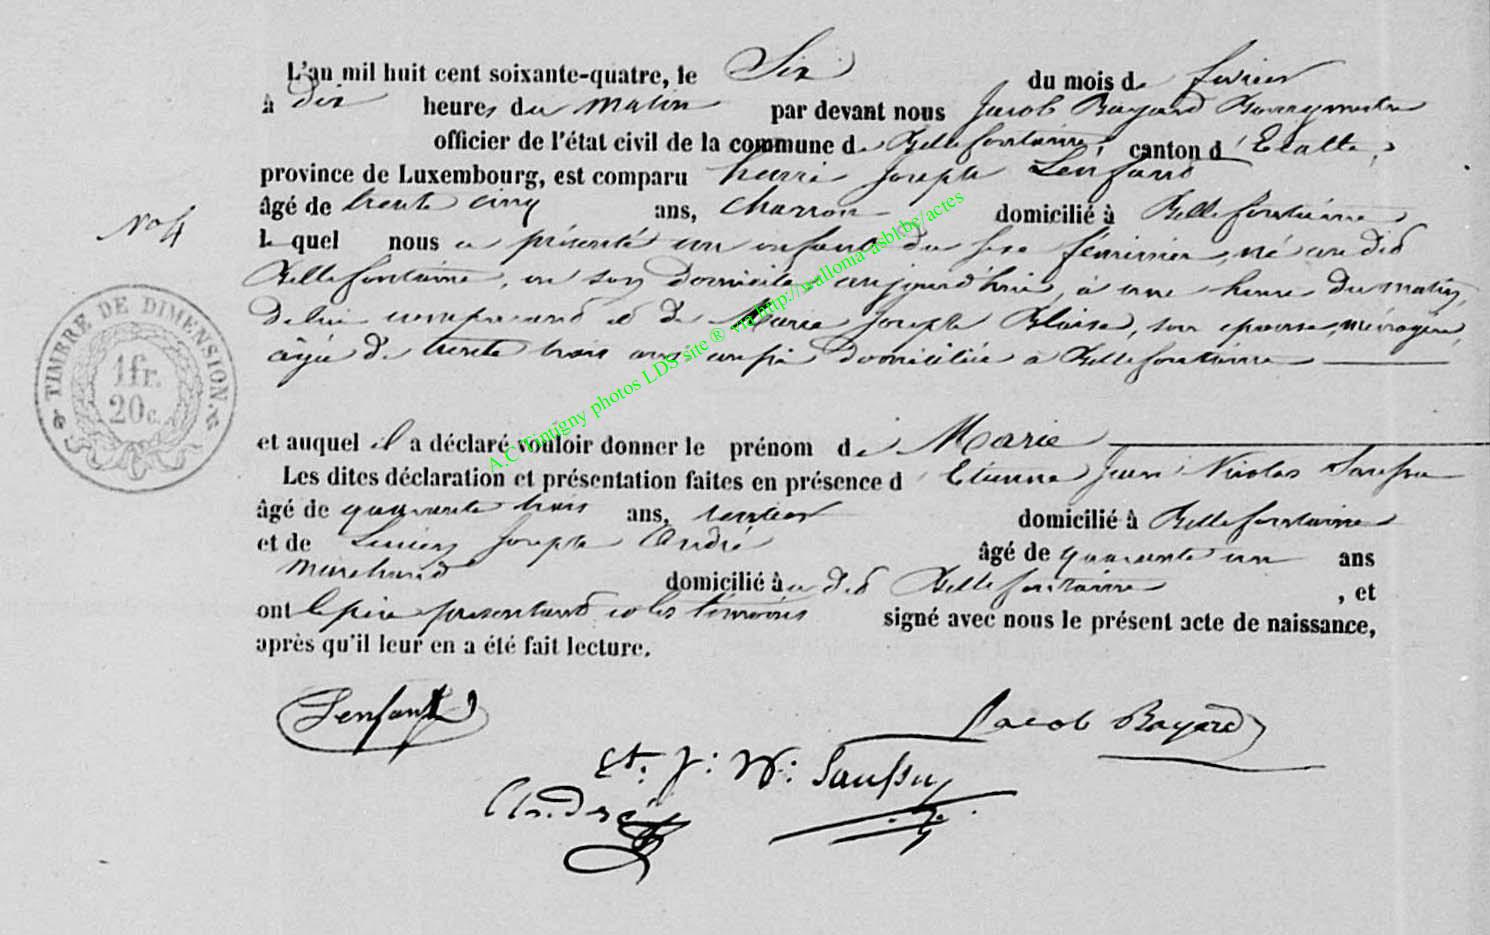 L'an mil huit cent soixante-quatre, le Six du mois de fevrier
à dix heures du matin par devant nous Jacob Bayard Bourgmestre
officier de l'état civil de la commune de Bellefontaine, canton d'Etalle,
province de Luxembourg, est comparu henri Joseph Lenfant
âgé de trente cinq ans, charron domicilié à Bellefontaine
No 4
le quel nous a présenté un enfant du sexe féminin, né au dit
Bellefontaine, en son domicile, aujourd'hui, à une heure du matin,
de lui comparant et de Marie Joseph Blaise, son épouse, ménagère,
âgée de trente trois ans aussi domiciliée à Bellefontaine
et auquel il a déclaré vouloir donner le prénom de Marie
Les dites déclaration et présentation faites en présence d Etienne Jean Nicolas
âgé de quarante trois ans, rentier domicilié à Bellefontaine
et de Lucien Joseph André âgé de quarante un ans
Marchand domicilié à au dit Bellefontaine, et
ont le père présentant et les témoins signé avec nous le présent acte de naissance,
après qu'il leur en a été fait lecture.
TIMBRE DE DIMENSION.
1 fr.
20 c.
A.C Tintigny photos LDS site ® via http://wallonia-asbl.be/actes
Lenfant
Jacob Bayard
Et. J: N:
André